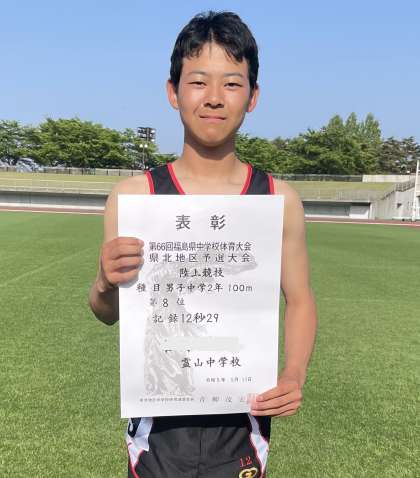 表彰
第66回福島県中学校体育大会
県北地区予選大会
陸上競技
種目 男子中学2年 100m
第8位
記録 12秒29
霊山中学校
12